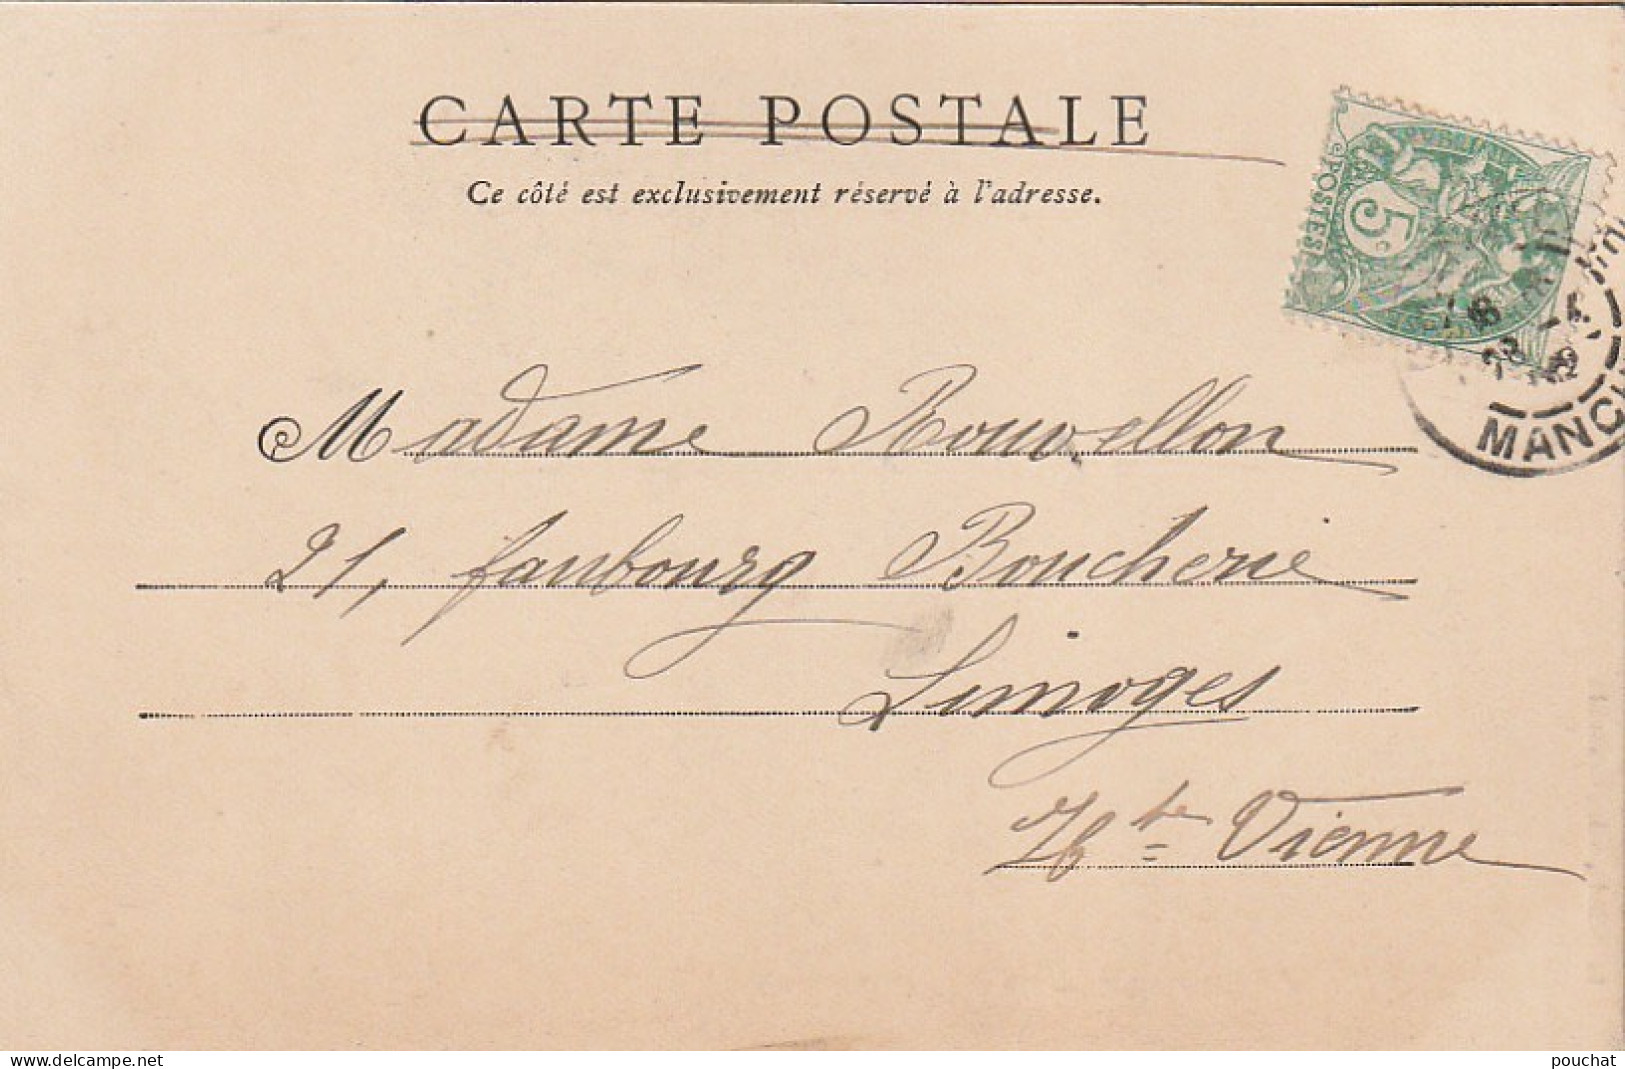 CARTE POSTALE
Ce côté est exclusivement réservé à l'adresse.
POSTES
5c
MANC
Madame Rouvellon
21, faubourg Boucherie
Limoges
Hte Vienne
www.delcampe.net
pouchat